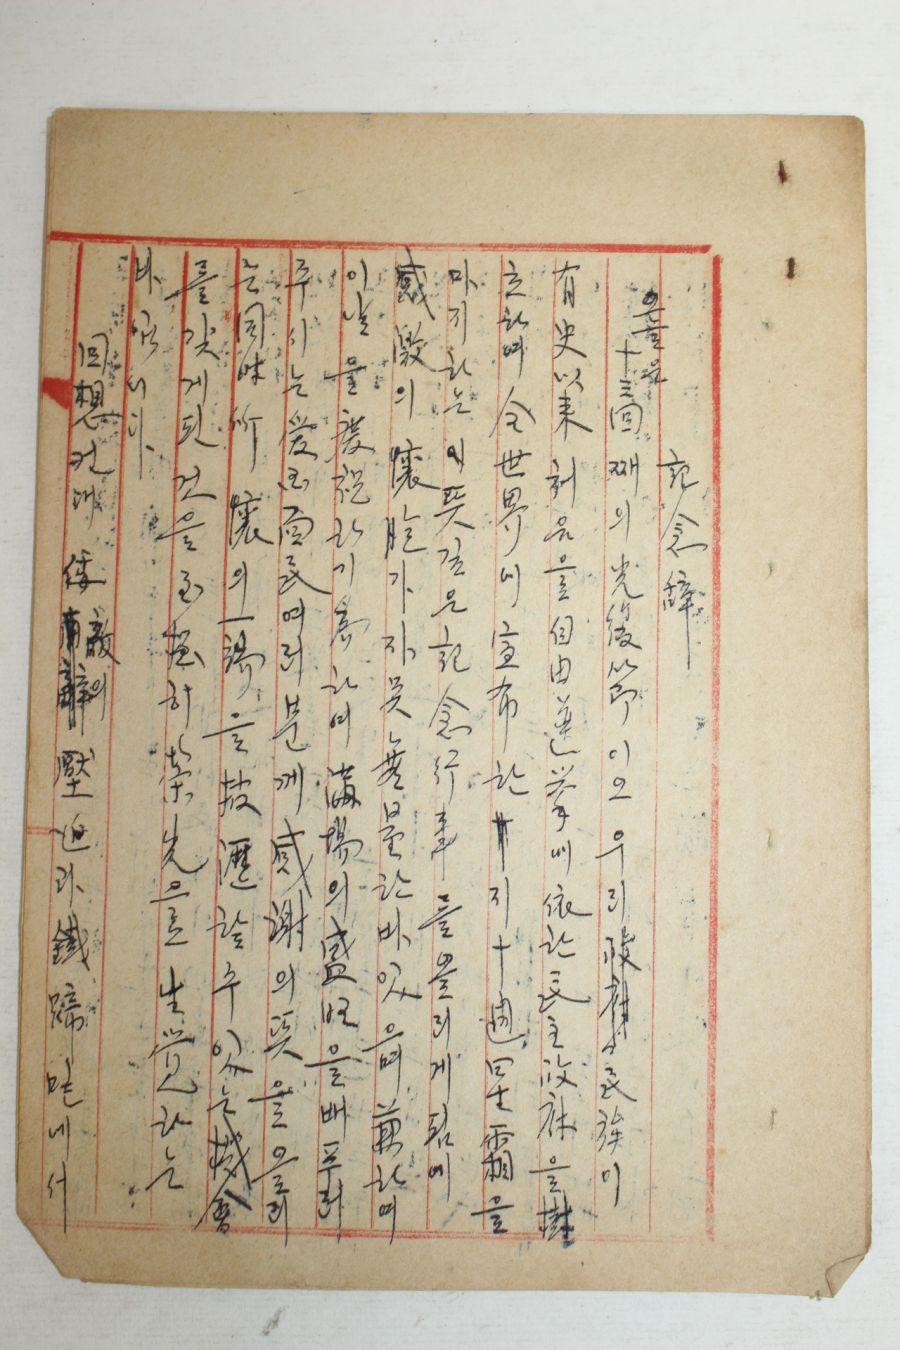 記念辭
오늘은 十三回째의 光復節이오 우리 民族이
有史以來 처음으로 自由選擧에 依한 民主政府을 樹
立하며 全世界에 宣布한지 十週星霜을
마지하는 이 뜻깊은 記念行事를 올리게 됨에
感激의 懷胞가 자못 無量한 바 있으며 兼하여
이날을 慶祝하기 爲하여 滿場의 盛旺을 베푸러
주시는 愛國 面民 여러분께 感謝의 뜻을 올리
는 同時 所懷의 一端을 披瀝할 수 있는 機會
를 갖게 된 것을 至極히 榮光으로 生覺하는
바 입니다.
回想컨대 倭敵의 壓迫과 鐵蹄 밑에서